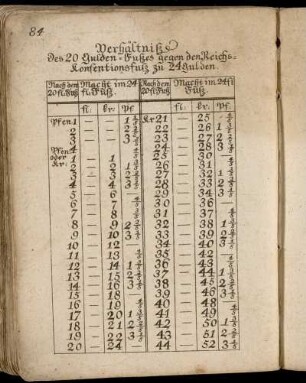 84
Verhältniß
Des 20 Gulden-Fußes gegen den Reichs-
Konventionsfuß zu 24 Gulden.
Nach dem Macht im 24 Nach dem Macht im 24 fl
20 fl. Fuß fl. Fuß. 20 fl. Fuß Fuß.
fl. kr. Pf. fl. kr. Pf.
Pfen: 1 — — 1 1/5 Kr: 21 — 25 4/5
2 — — 2 2/5 22 — 26 1 3/5
3 — — 3 3/5 23 — 27 2 2/5
Pfen: 4 24 — 28 3 1/5
oder
Kr: 1 — 1 4/5 25 — 30 —
2 — 2 1 3/5 26 — 31 4/5
3 — 3 2 2/5 27 — 32 1 3/5
4 — 4 3 1/5 28 — 33 2 2/5
5 — 6 — 29 — 34 3 1/5
6 — 7 4/5 30 — 36 —
7 — 8 1 3/5 31 — 37 4/5
8 — 9 2 2/5 32 — 38 1 3/5
9 — 10 3 1/5 33 — 39 2 2/5
10 — 12 — 34 — 40 3 1/5
11 — 13 4/5 35 — 42 —
12 — 14 1 3/5 36 — 43 4/5
13 — 15 2 2/5 37 — 44 1 3/5
14 — 16 3 1/5 38 — 45 2 2/5
15 — 18 — 39 — 46 3 1/5
16 — 19 4/5 40 — 48 —
17 — 20 1 3/5 41 — 49 4/5
18 — 21 2 2/5 42 — 50 1 3/5
19 — 22 3 1/5 43 — 51 2 2/5
20 — 24 — 44 — 52 3 1/5